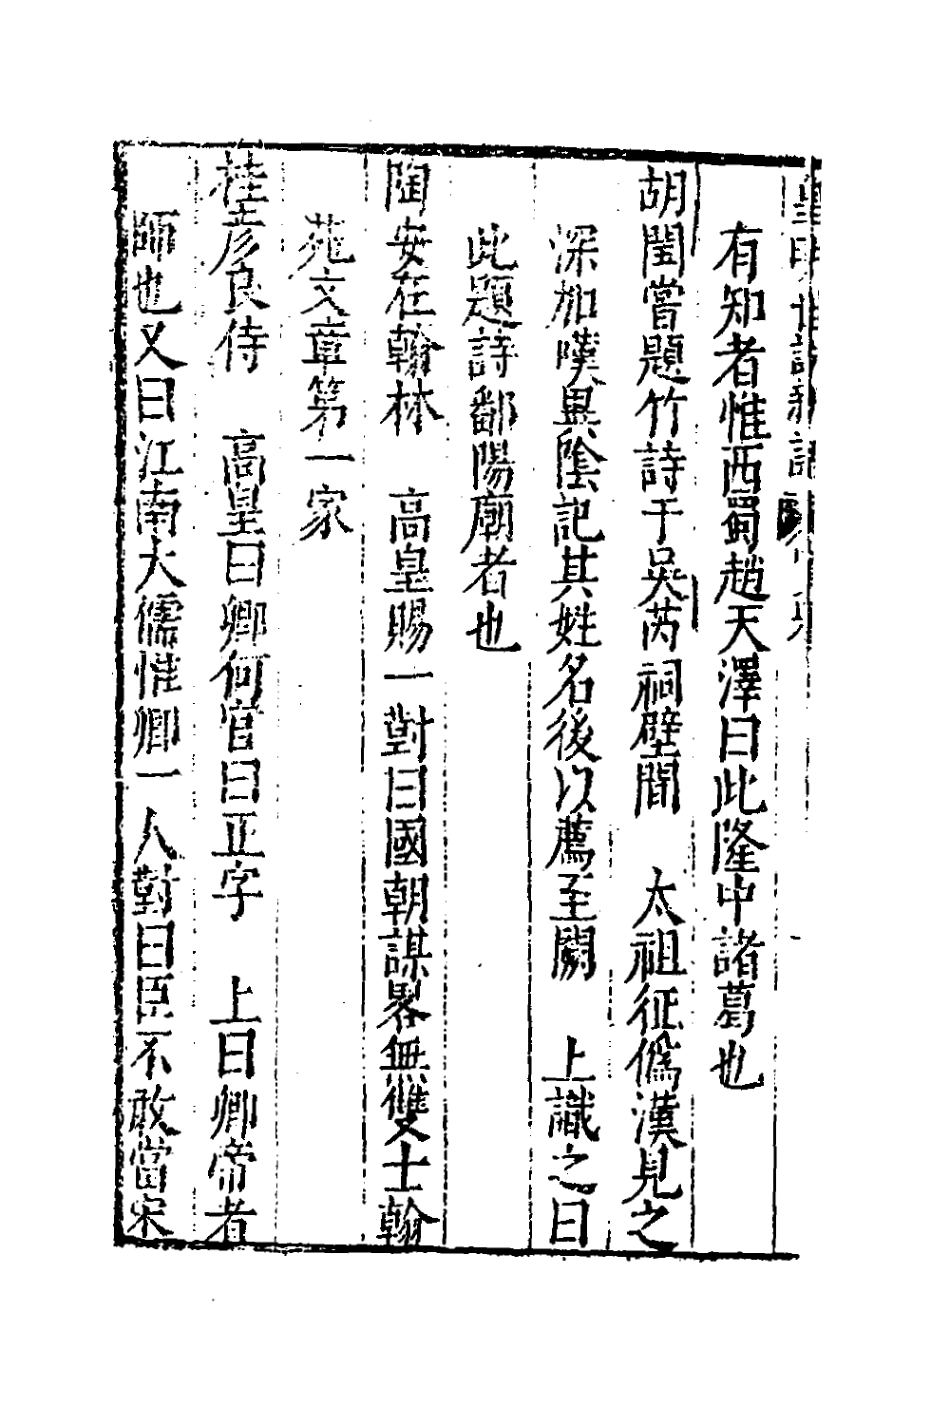 皇明世說新語
有知者惟西蜀趙天澤曰此隆中諸葛也
胡閏嘗題竹詩于吳芮祠壁間　太祖征僞漢見之
深加嘆異陰記其姓名後以薦至闕　上識之曰
此題詩鄱陽廟者也
陶安在翰林　高皇賜一對曰國朝謀畧無雙士翰
苑文章第一家
桂彥良侍　高皇曰卿何官曰正字　上曰卿帝者
師也又曰江南大儒惟卿一人對曰臣不敢當宋